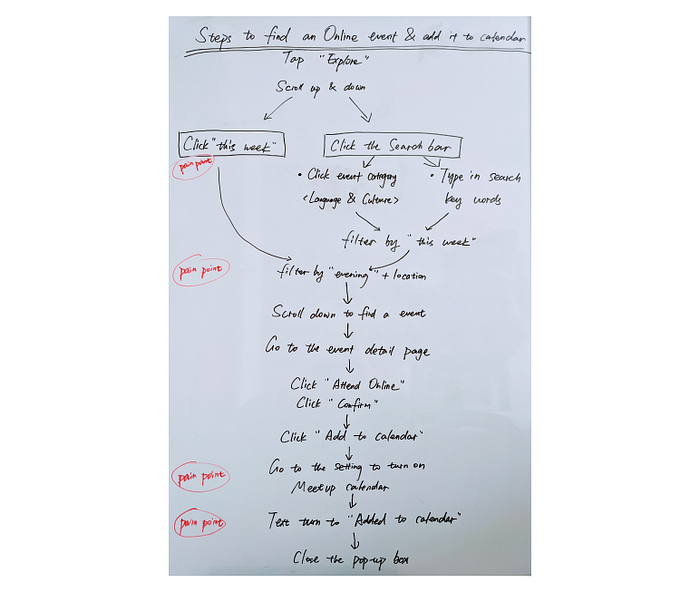 Steps to find an Online event & add it to calendar
Tap "Explore"
Scroll up & down
Click "this week"
Click the Search bar
pain point
• Click event category
<Language & Culture>
• Type in search
key words
filter by "this week"
pain point
filter by "evening" + location
Scroll down to find a event
Go to the event detail page
Click "Attend Online"
Click "Confirm"
Click "Add to calendar"
pain point
Go to the setting to turn on
Meetup calendar
pain point
Text turn to "Added to calendar"
Close the pop-up box